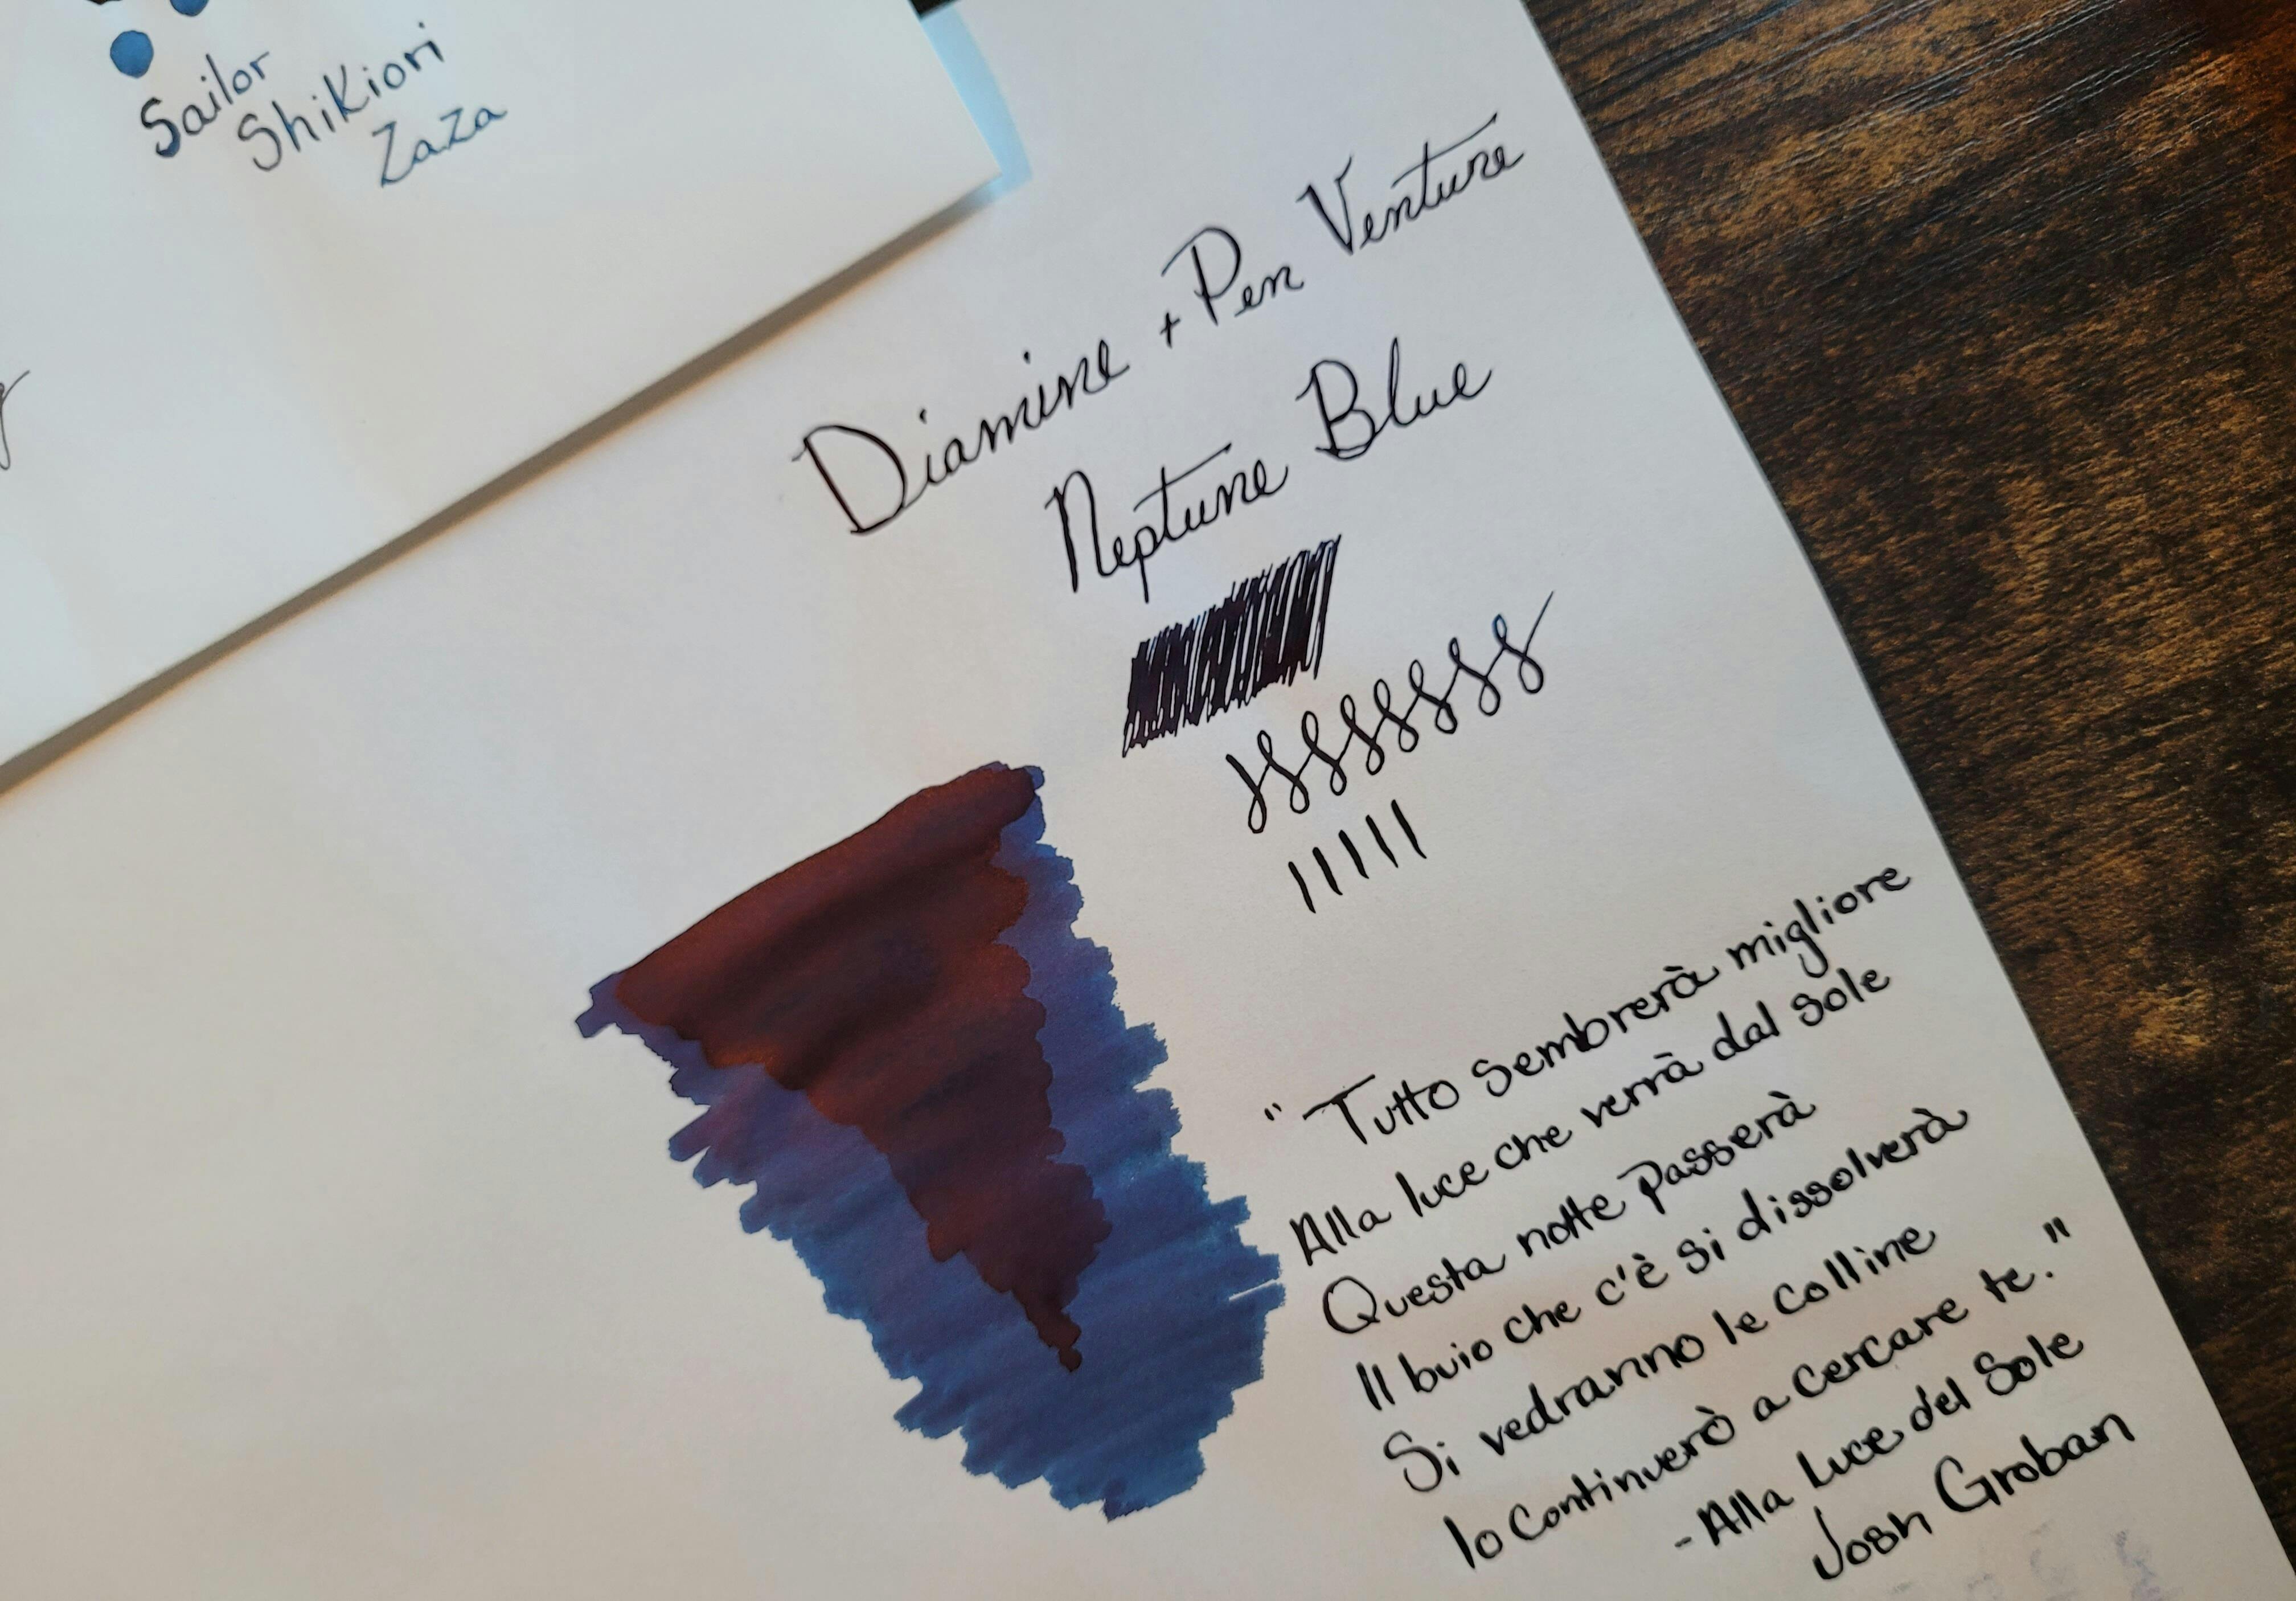 Sailor
Shikiori
ZaZa
Diamine + Pen Venture
Neptune Blue
"Tutto sembrerà migliore
Alla luce che verrà dal sole
Questa notte passerà
Il buio che c'è si dissolverà
Si vedranno le colline
Io continuerò a cercare te."
-Alla Luce del Sole
Josh Groban